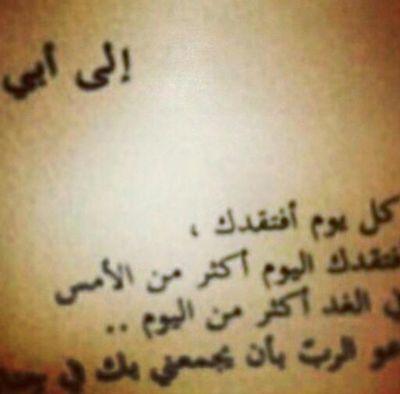 إلى أبي
كل يوم أفتقدك ،
فتقدك اليوم أكثر من الأمس
الغد أكثر من اليوم ..
عو الرب بأن يجمعني بك في